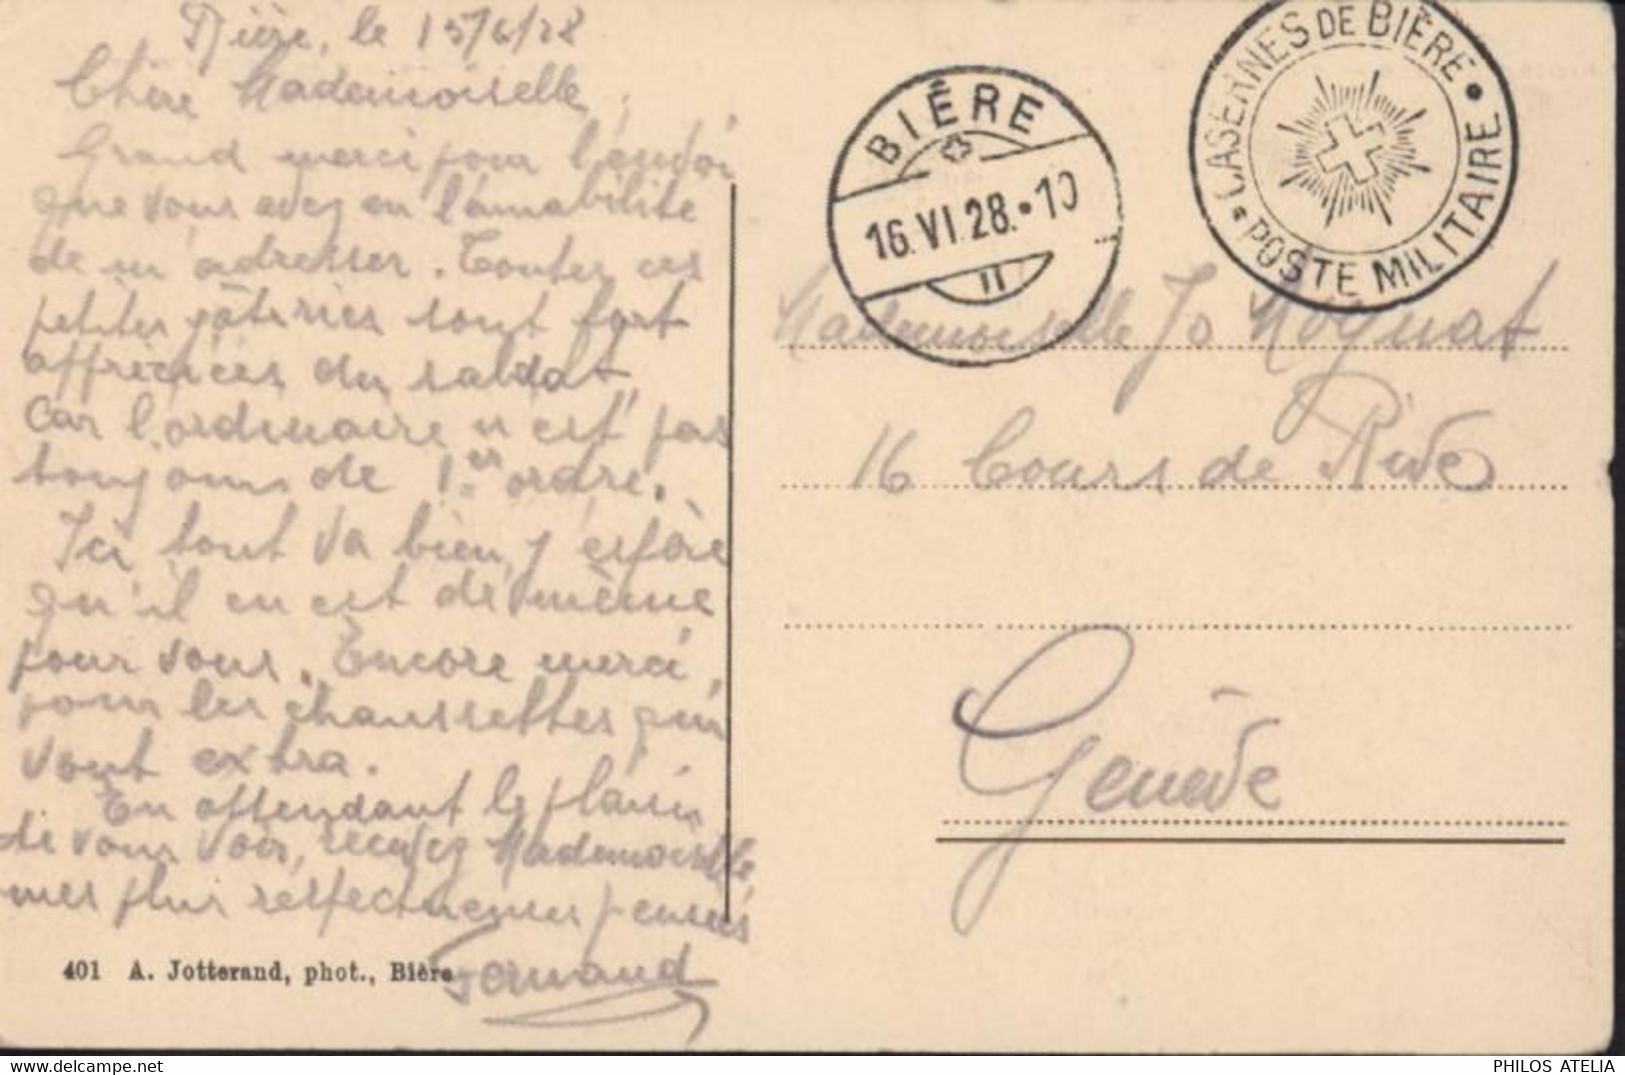 Bière, le 15/6/28
Chère Mademoiselle,
Grand merci pour l'envoi
que vous avez eu l'amabilité
de m'adresser. Toutes ces
petites gâteries sont fort
appréciées du soldat,
car l'ordinaire n'est pas
toujours de 1er ordre.
Ici tout va bien, j'espère
qu'il en est de même
pour vous. Encore merci,
pour les chaussettes qui
vont extra.
En attendant le plaisir
de vous voir, recevez Mademoiselle
mes plus respectueuses pensées
Fernand
401 A. Jotterand, phot., Bière
BIÈRE
16.VI.28.•10
II
CASERNES DE BIÈRE •
• POSTE MILITAIRE
Mademoiselle Jo Moynat
16 Cours de Rive
Genève
PHILOS ATELIA